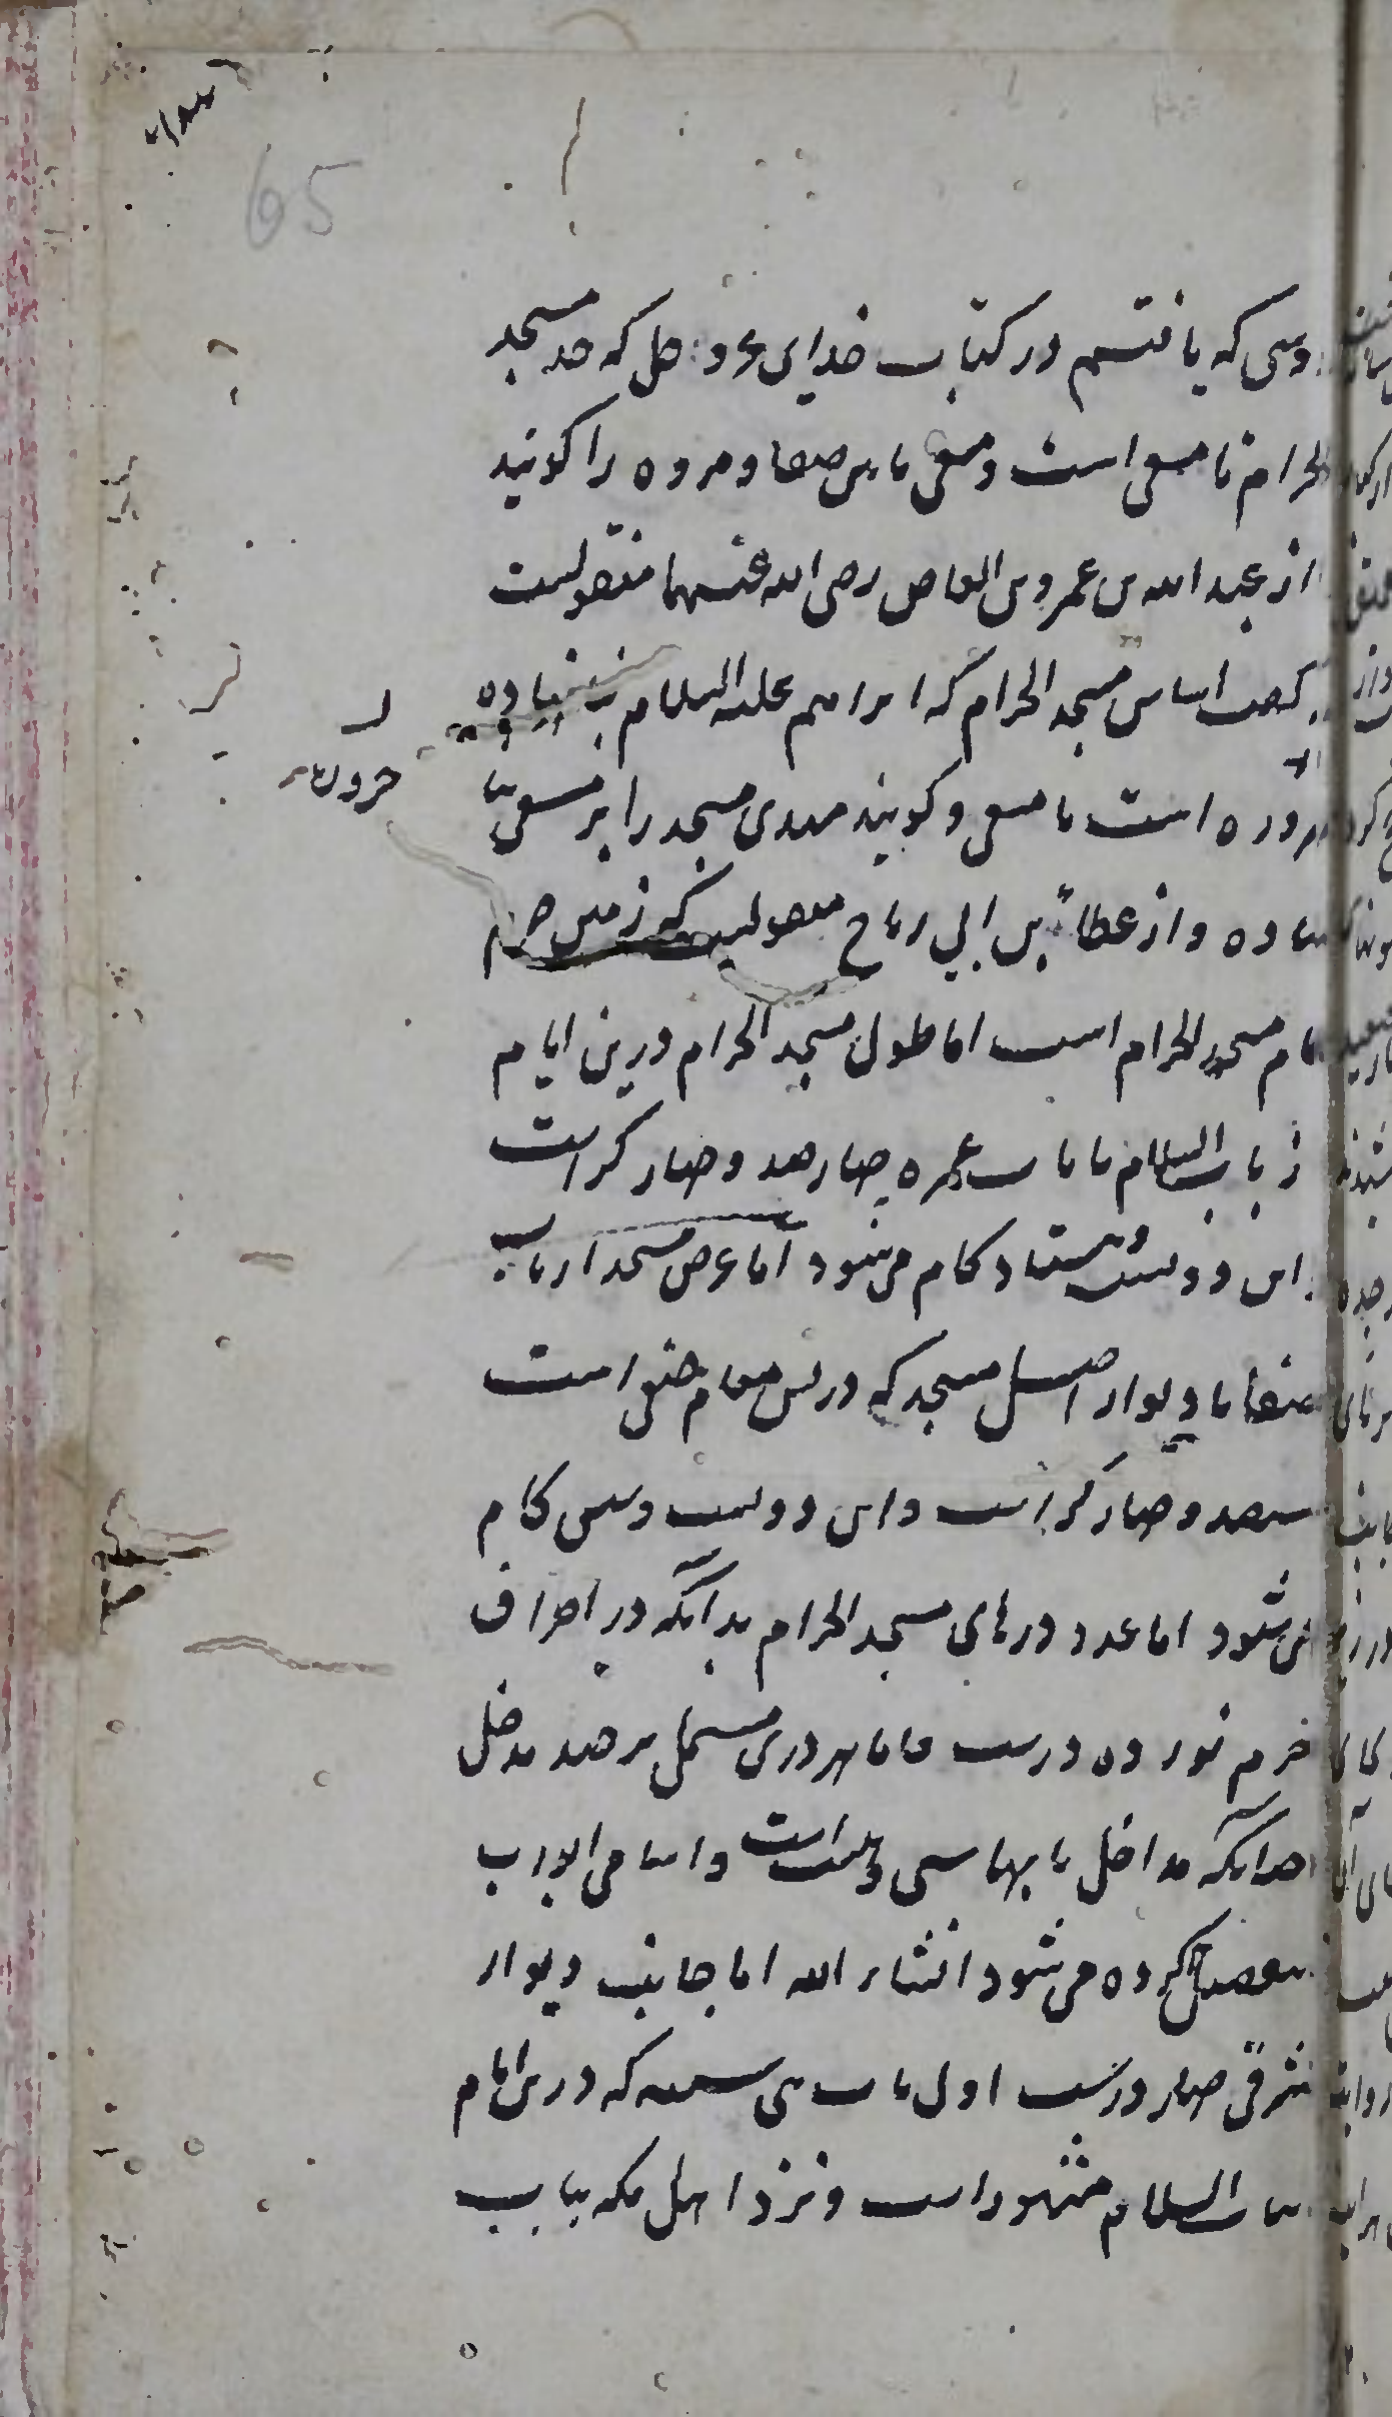 65
که یافتیم در کتاب خدای عز و جل که حد مسجد
الحرام تا مسعی است و مسعی مابین صفا و مروه را گویند
از عبد الله بن عمرو بن العاص رضی الله عنهما منقولست
که گفت اساس مسجد الحرام که ابراهیم علیه السلام بنیاده
است تا مسعی و گویند مهدی مسجد را بر مسعی بنا
نهاده و از عطاء بن ابی رباح منقولست که زمین حرم
تمام مسجد الحرام است اما طول مسجد الحرام درین ایام
از باب السلام تا باب عمره چهارصد و چهار گز است
و این دویست و هشتاد گام می‌شود اما عرض مسجد از باب
صفا تا دیوار اصل مسجد که در پس مقام حنفی است
سیصد و چهار گز است و این دویست و سی گام
می‌شود اما عدد درهای مسجد الحرام بدانکه در اطراف
حرم نوزده درست اما هر دری مشتمل بر چند مدخل
چنانکه مداخل بابها سی و هشت است و اسامی ابواب
بتفصیل کرده می‌شود انشاء الله اما جانب دیوار
شرقی چهار درست اول باب بنی شیبه که درین ایام
بباب السلام مشهور است و نزد اهل مکه بباب